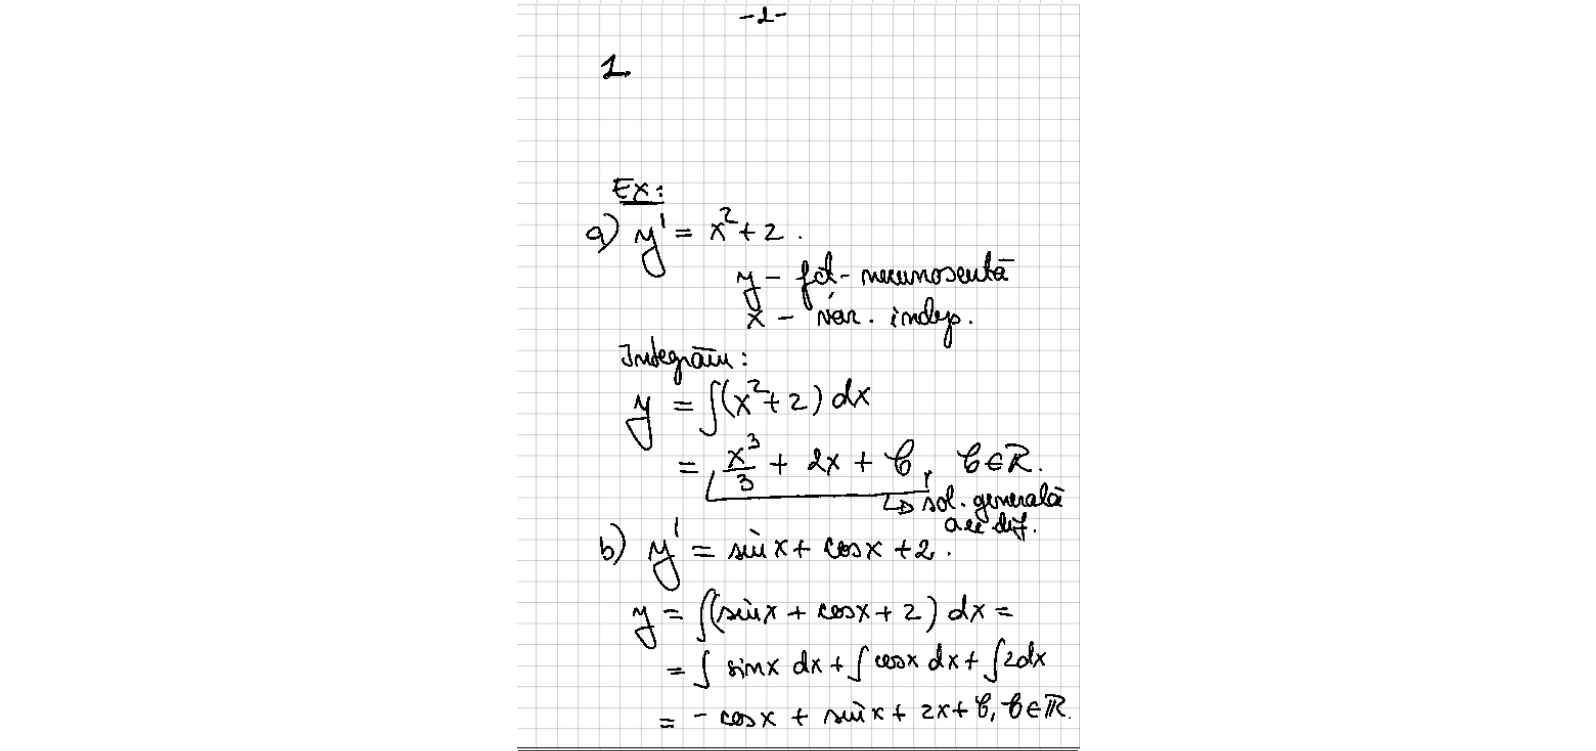 -1-
1.
Ex:
a) y' = x² + 2.
y - fct. necunoscută
x - var. indep.
Integrăm:
y = ∫(x² + 2) dx
= x³/3 + 2x + C, C ∈ ℝ.
↳ sol. generală
a ec dif.
b) y' = sin x + cos x + 2.
y = ∫(sin x + cos x + 2) dx =
= ∫ sin x dx + ∫ cos x dx + ∫ 2dx
= - cos x + sin x + 2x + C, C ∈ ℝ.